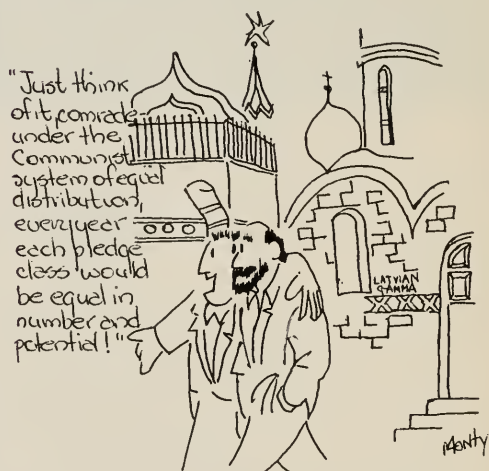 "Just think
of it, comrade-
under the
Communist
system of equal
distribution,
every year
each pledge
class would
be equal in
number and
potential!"
LATVIAN
GAMMA
XXXX
Monty